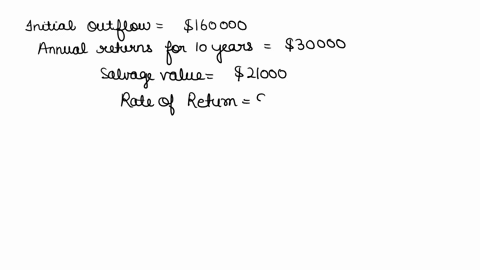 Initial outflow = $160000
Annual returns for 10 years = $30000
Salvage value = $21000
Rate of Return =